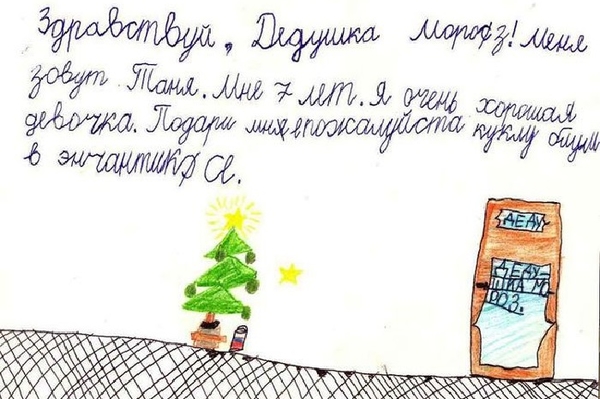 Здравствуй, Дедушка Мороз! Меня
зовут Таня. Мне 7 лет. Я очень хорошая
девочка. Подари мня пожалуйста куклу
в энчантикс
ДЕДУ
ДЕДУ-
ШКА МО-
РОЗ.